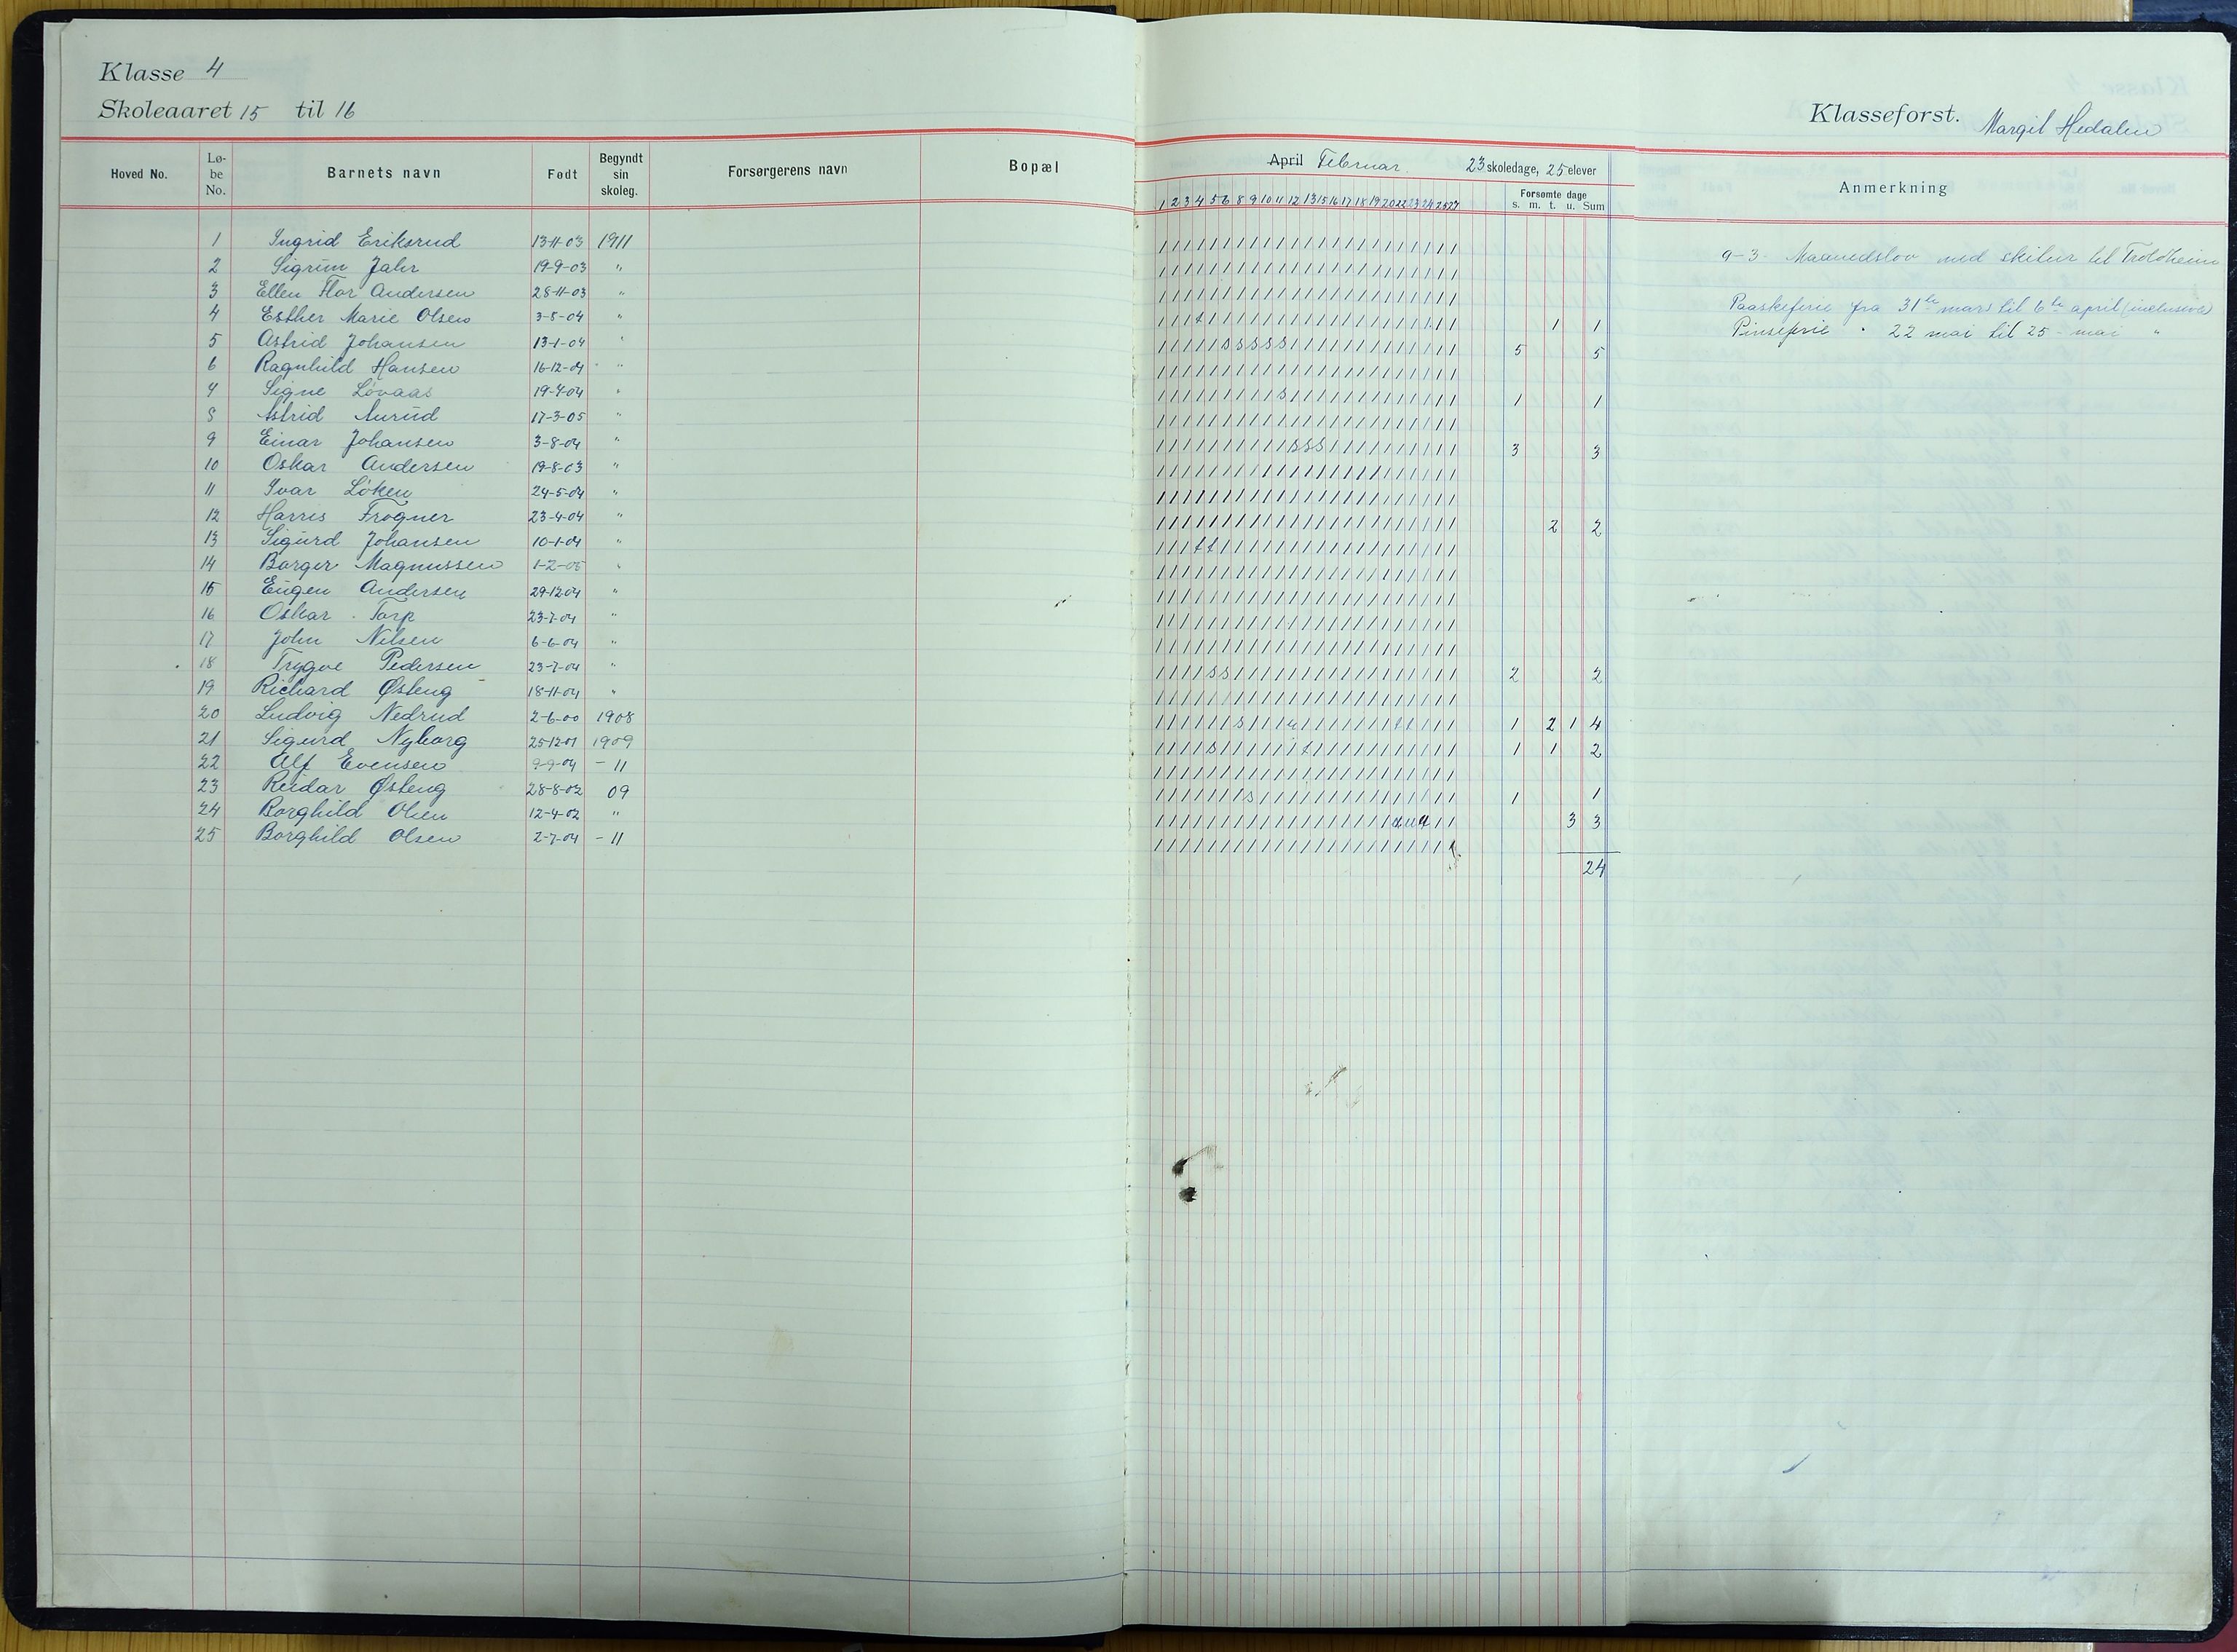 Klasse 4
Skoleaaret 15 til 16
Klasseforst. Margit Hedalen
Hoved No. Lø-be No. Barnets navn Født Begyndt sin skoleg. Forsørgerens navn Bopæl
April Februar 23 skoledage, 25 elever
Anmerkning
Forsømte dage
1 2 3 4 5 6 8 9 10 11 12 13 15 16 17 18 19 20 22 23 24 25 27 s. m. t. u. Sum
1 Ingrid Eriksrud 13-11-03 1911
2 Sigrun Jahr 19-9-03 "
3 Ellen Flor Andersen 28-11-03 "
4 Esther Marie Olsen 3-8-04 " 1 1
5 Astrid Johansen 13-1-04 " 5 5
6 Ragnhild Hansen 16-12-04 "
7 Signe Løvaas 19-7-04 " 1 1
8 Astrid Aurud 17-3-05 "
9 Einar Johansen 3-8-04 " 3 3
10 Oskar Andersen 19-8-03 "
11 Ivar Løken 24-5-04 "
12 Harris Frogner 23-4-04 " 2 2
13 Sigurd Johansen 10-1-04 "
14 Borger Magnussen 1-2-05 "
15 Eugen Andersen 29-12-04 "
16 Oskar Torp 23-7-04 "
17 John Nilsen 6-6-04 "
18 Trygve Pedersen 23-7-04 " 2 2
19 Richard Østeng 18-11-04 "
20 Ludvig Nedrud 2-6-00 1908 1 2 1 4
21 Sigurd Nyborg 25-12-01 1909 1 1 2
22 Alf Evensen 9-9-04 - 11
23 Reidar Østeng 28-8-02 09 1 1
24 Borghild Olsen 12-4-02 " 3 3
25 Borghild Olsen 2-7-04 - 11
24
9-3- Maanedslov med skitur til
Paaskeferie fra 31te mars til 6te april (inclusive)
Pinseferie " 22 mai til 25 - mai "